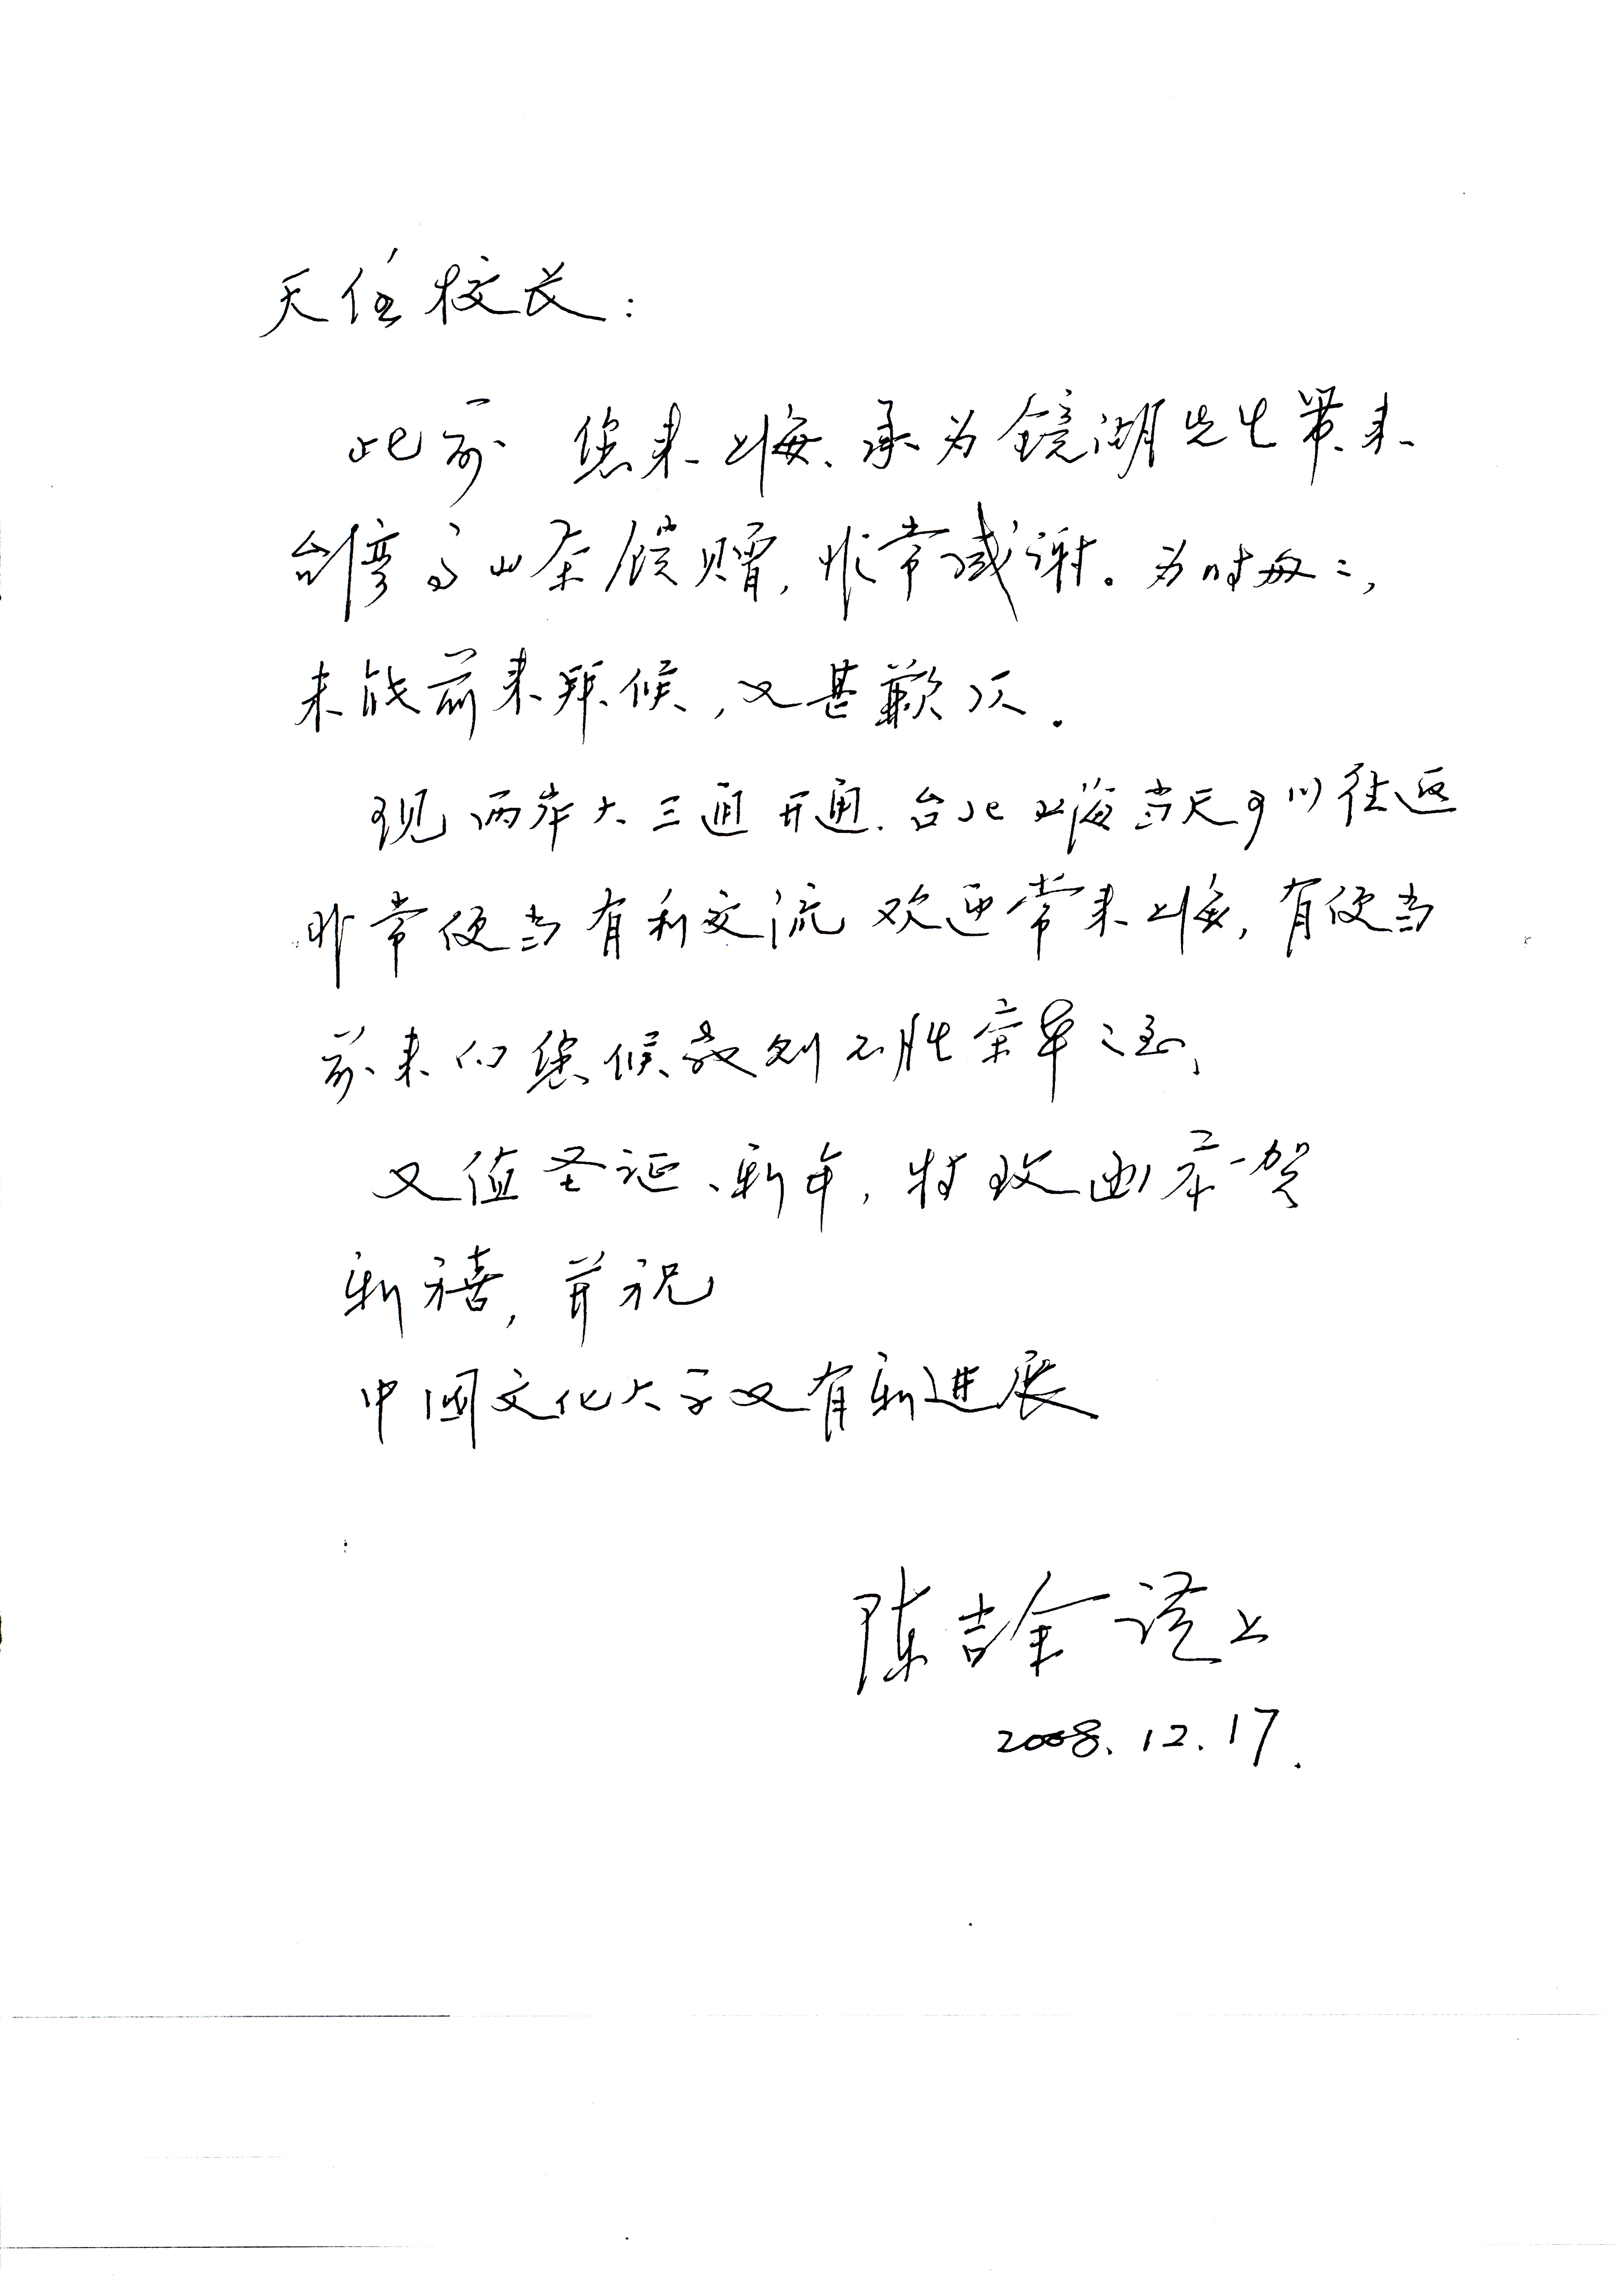 天任校长：
此前 您来上海、承为镜湖先生带来
台湾高山茶馈赠，非常感谢。为时匆匆，
未能前来拜候，又甚歉仄。
现两岸大三通开通、台北上海当天可以往返
非常便当有利交流 欢迎常来上海，有便当
前来向您候教则不胜荣幸之至，
又值圣诞、新年，特致函恭贺
新禧，并祝
中国文化大学又有新进展
陈吉余谨上
2008.12.17.